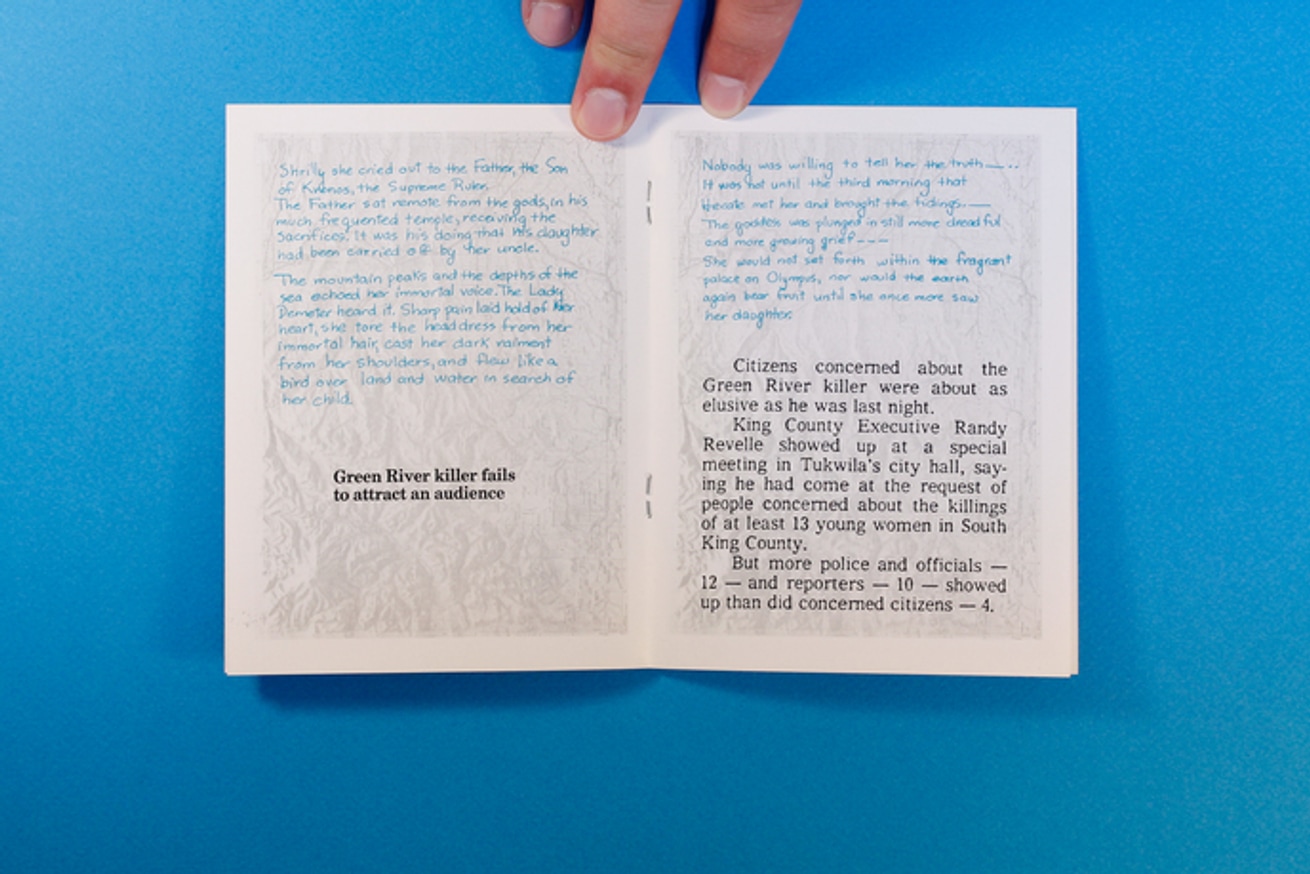 Shrilly she cried out to the Father, the Son
of Kronos, the Supreme Ruler.
The Father sat remote from the gods, in his
much frequented temple, receiving the
sacrifices. It was his doing that his daughter
had been carried off by her uncle.
The mountain peaks and the depths of the
sea echoed her immortal voice. The Lady
Demeter heard it. Sharp pain laid hold of her
heart, she tore the headdress from her
immortal hair, cast her dark raiment
from her shoulders, and flew like a
bird over land and water in search of
her child.
Green River killer fails
to attract an audience
Nobody was willing to tell her the truth—..
It was not until the third morning that
Hecate met her and brought the tidings.—
The goddess was plunged in still more dreadful
and more growing grief---
She would not set forth within the fragrant
palace on Olympus, nor would the earth
again bear fruit until she once more saw
her daughter.
Citizens concerned about the
Green River killer were about as
elusive as he was last night.
King County Executive Randy
Revelle showed up at a special
meeting in Tukwila's city hall, say-
ing he had come at the request of
people concerned about the killings
of at least 13 young women in South
King County.
But more police and officials —
12 — and reporters — 10 — showed
up than did concerned citizens — 4.